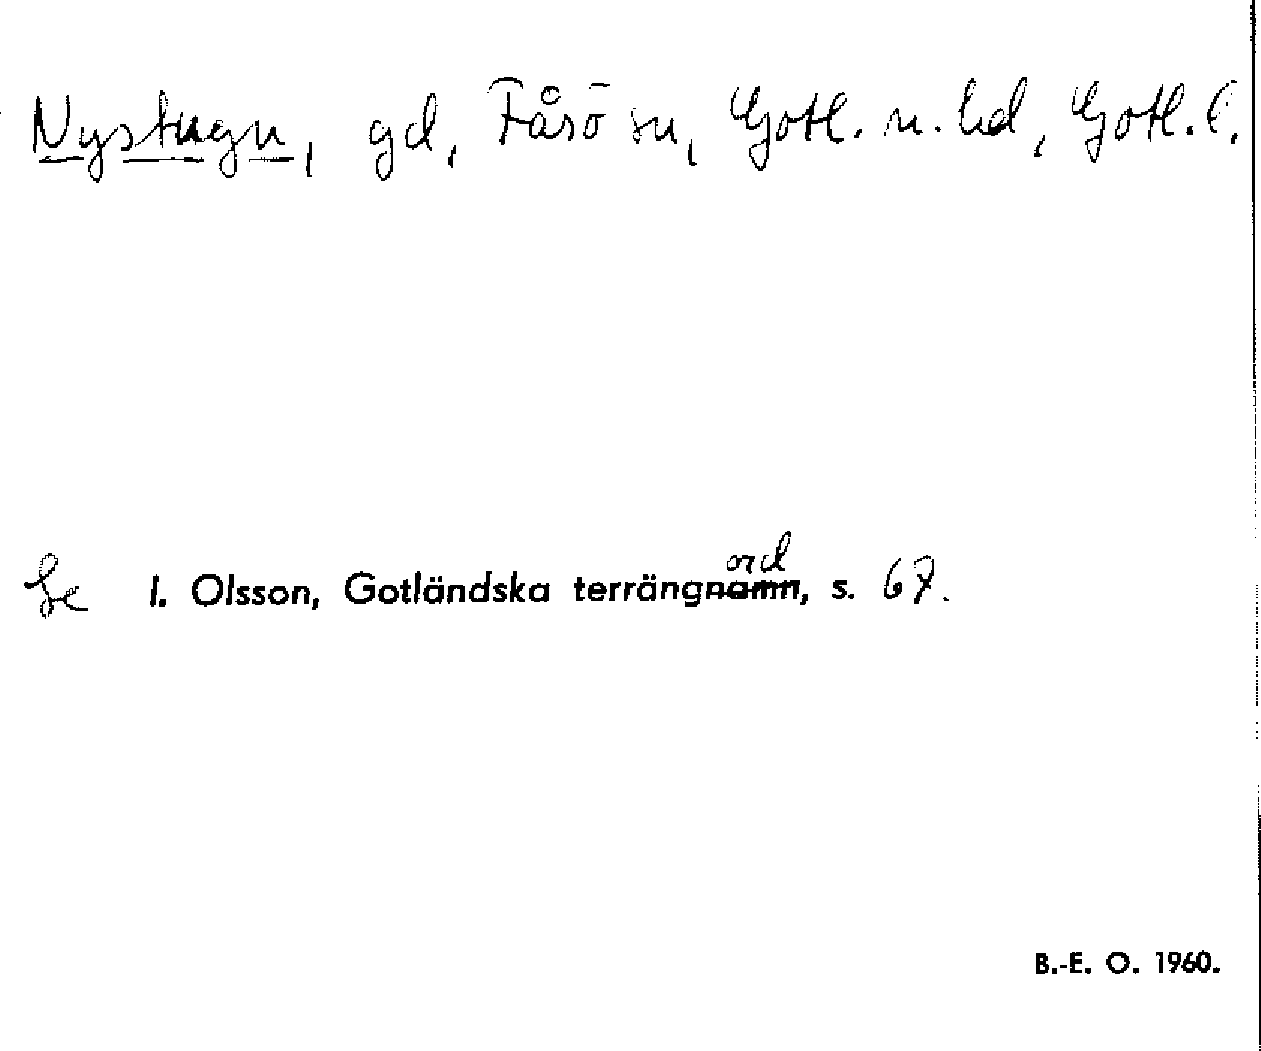 Nystugn, gd, Fårö sn, Gotl. n. hd, Gotl. l.
Se I. Olsson, Gotländska terrängnamn ord, s. 67.
B.-E. O. 1960.